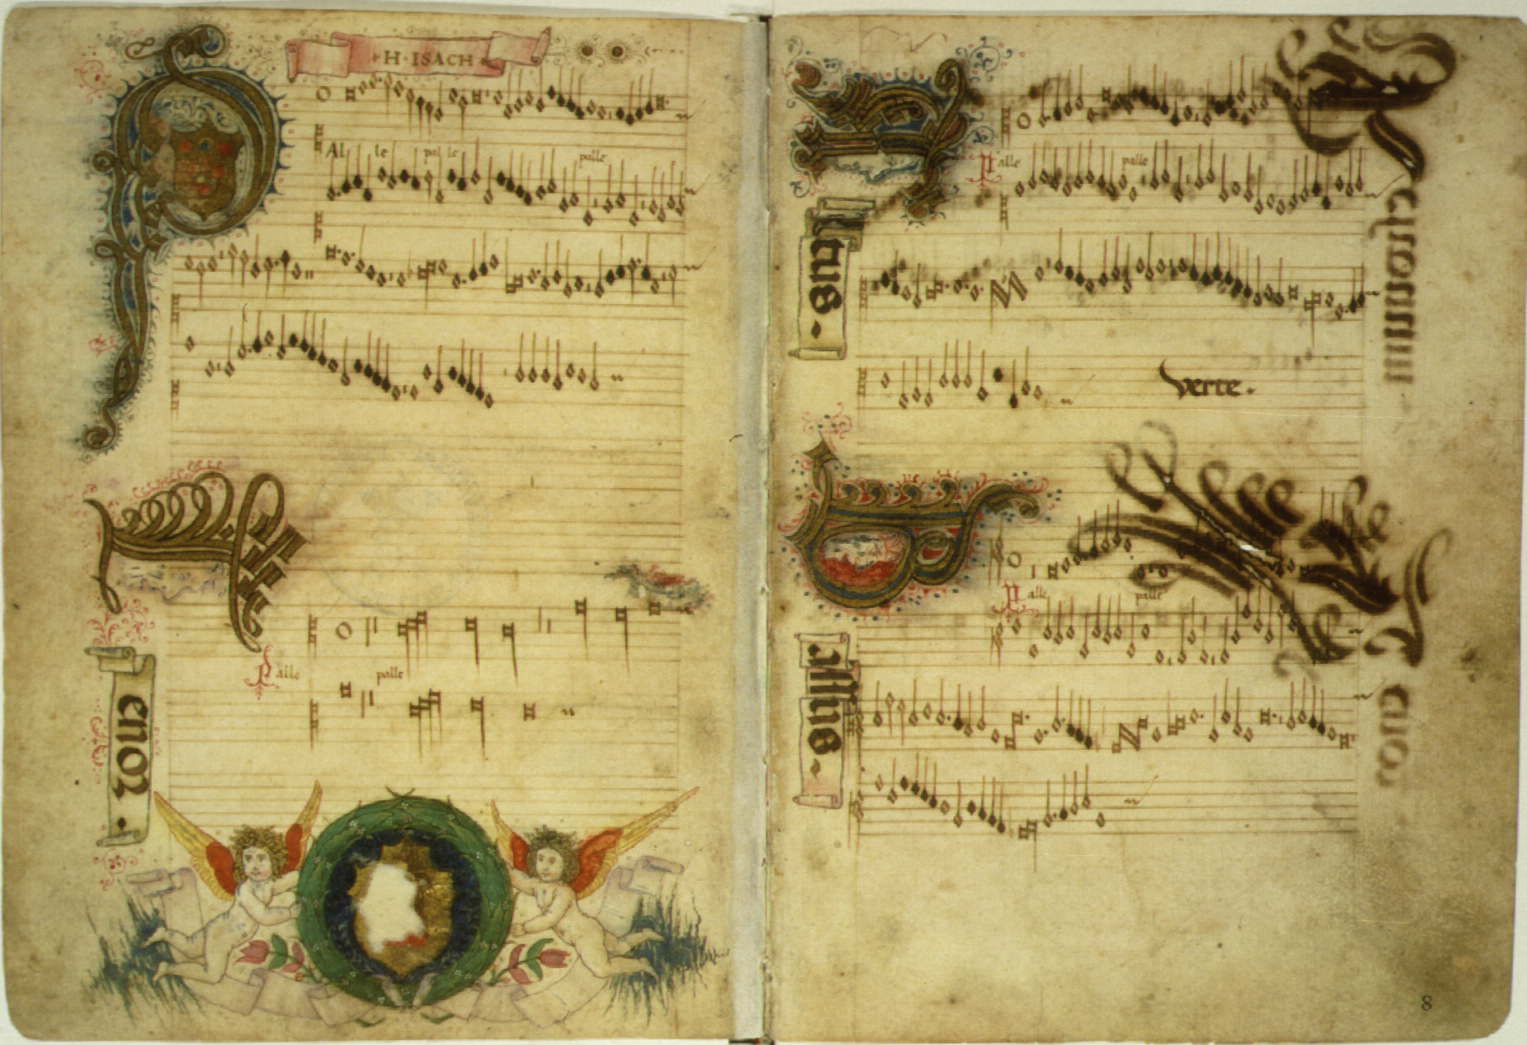 ·H·ISACH·
Al le pal le palle
Palle palle
enor.
Palle palle
ltus.
Verte.
Palle palle
assus.
8